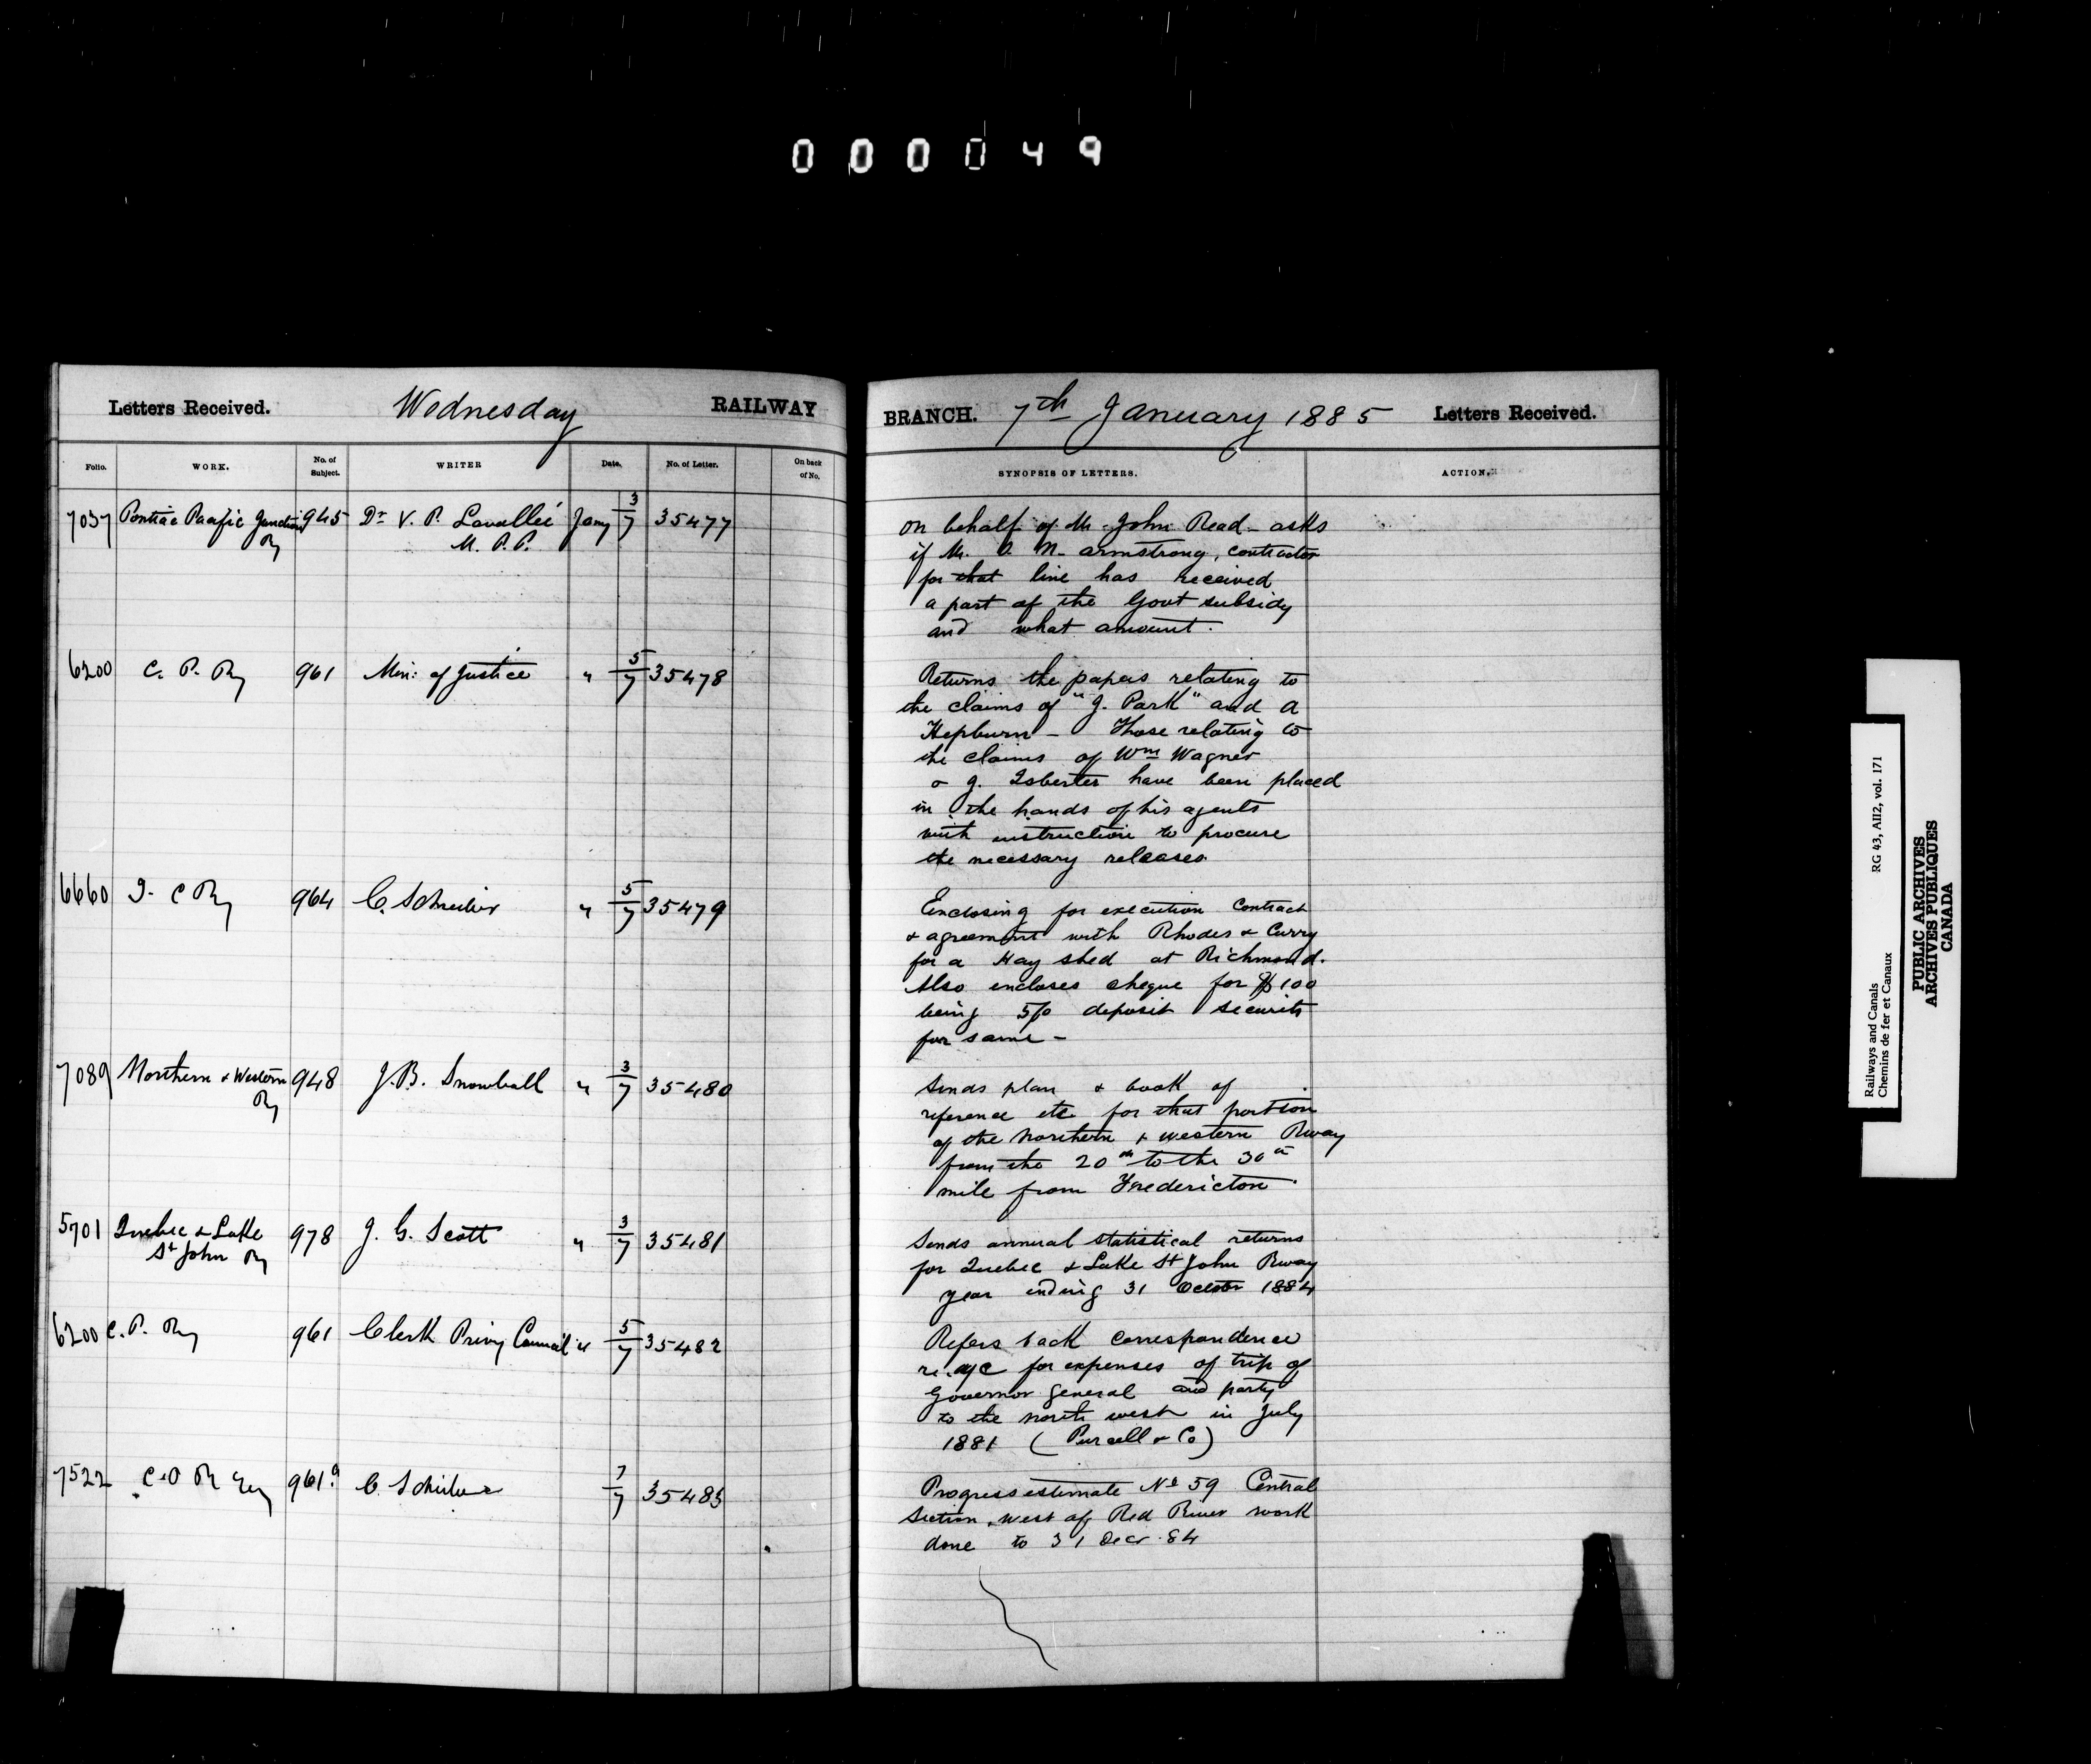 000049
Letters Received. Wednesday RAILWAY
Folio. WORK. No. of Subject. WRITER Date. No. of Letter. On back of No.
7037 Pontiac Pacific Junction 945 Dr V. P. Lavallée Jany 3/7 35477
Ry M. P. P.
6200 C. P. Ry 961 Min: of Justice " 5/7 35478
6660 I. C Ry 964 C. Schreiber " 5/7 35479
7089 Northern & Western 948 J. B. Snowball " 3/7 35480
Ry
5701 Quebec & Lake 978 J. G. Scott " 3/7 35481
St John Ry
6200 C. P. Ry 961 Clerk Privy Council " 5/7 35482
7522 Ry 961a C. Schreiber 7/7 35483
BRANCH. 7th January 1885 Letters Received.
SYNOPSIS OF LETTERS. ACTION.
on behalf of Mr John Read - asks
if Mr. N. armstrong, contractor
for that line has received
a part of the Govt subsidy
and what amount.
Returns the papers relating to
the claims of "J. Park" and A
Hepburn - Those relating to
the claims of Wm Wagner
& J. Isbester have been placed
in the hands of his agents
with instruction to procure
the necessary releases.
Enclosing for execution contract
& agreement with Rhodes & Curry
for a Hay shed at Richmond.
Also encloses cheque for $100
being 5% deposit security
for same -
Sends plan & book of
reference etc for that portion
of the Northern & Western Rway
from the 20th to the 30th
mile from Fredericton.
Sends annual statistical returns
for Quebec & Lake St John Rway
year ending 31 October 1884
Refers back correspondence
re. a/c for expenses of trip of
Governor General and party
to the north west in July
1881 (Purcell & Co)
Progress estimate No 59 Central
Section, west of Red River work
done to 31 Decr. 84
Railways and Canals RG 43, AII2, vol. 171
Chemins de fer et Canaux
PUBLIC ARCHIVES
ARCHIVES PUBLIQUES
CANADA